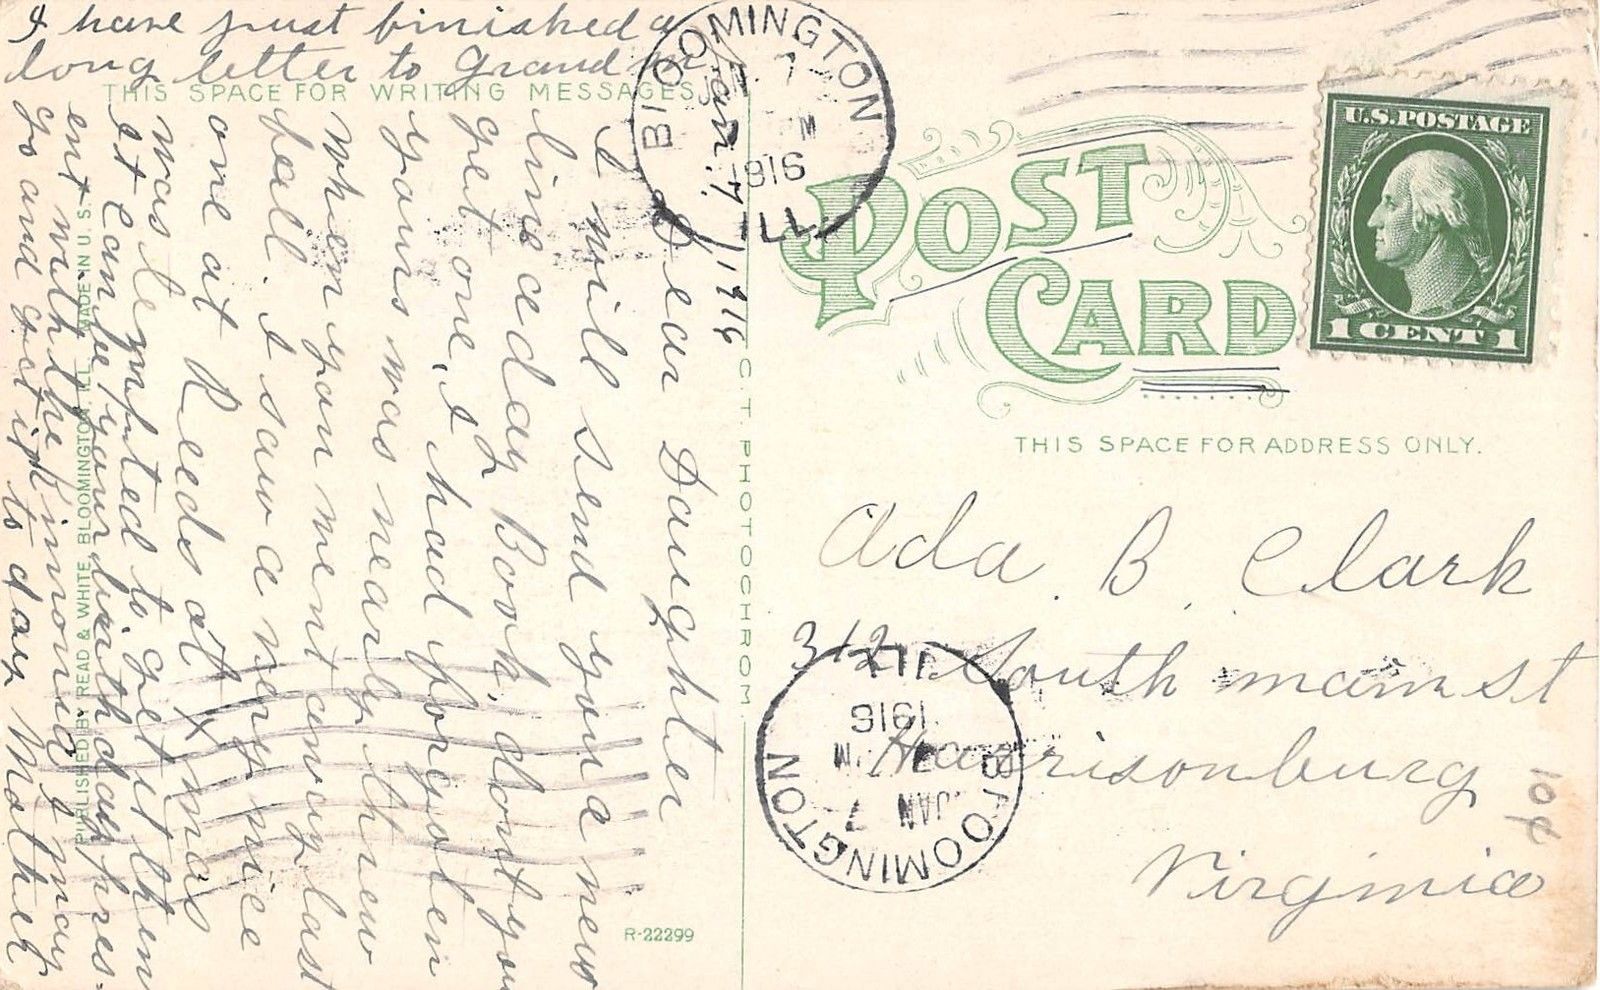 I have just finished a
long letter to Grandma
THIS SPACE FOR WRITING MESSAGES
Jan. 7/1916
Dear Daughter
I will send you a new
line a day Book, dont you
get one, I had forgoten
yours was nearly threw
when you went away last
fall. I saw a very nice
one at Reeds at Xmas
was tempted to get it then
it can be your birthday pres-
ent with the money I may
go and get it to day Mother
PUBLISHED BY READ & WHITE, BLOOMINGTON, ILL. MADE IN U. S.
R-22299
C. T. PHOTOCHROM.
BLOOMINGTON
JAN 7
1916
ILL.
U.S. POSTAGE
1 CENT 1
POST
CARD
THIS SPACE FOR ADDRESS ONLY.
Ada B. Clark
312 South main st
Harrisonburg
Virginia
BLOOMINGTON
JAN 7
1916
ILL.
10¢